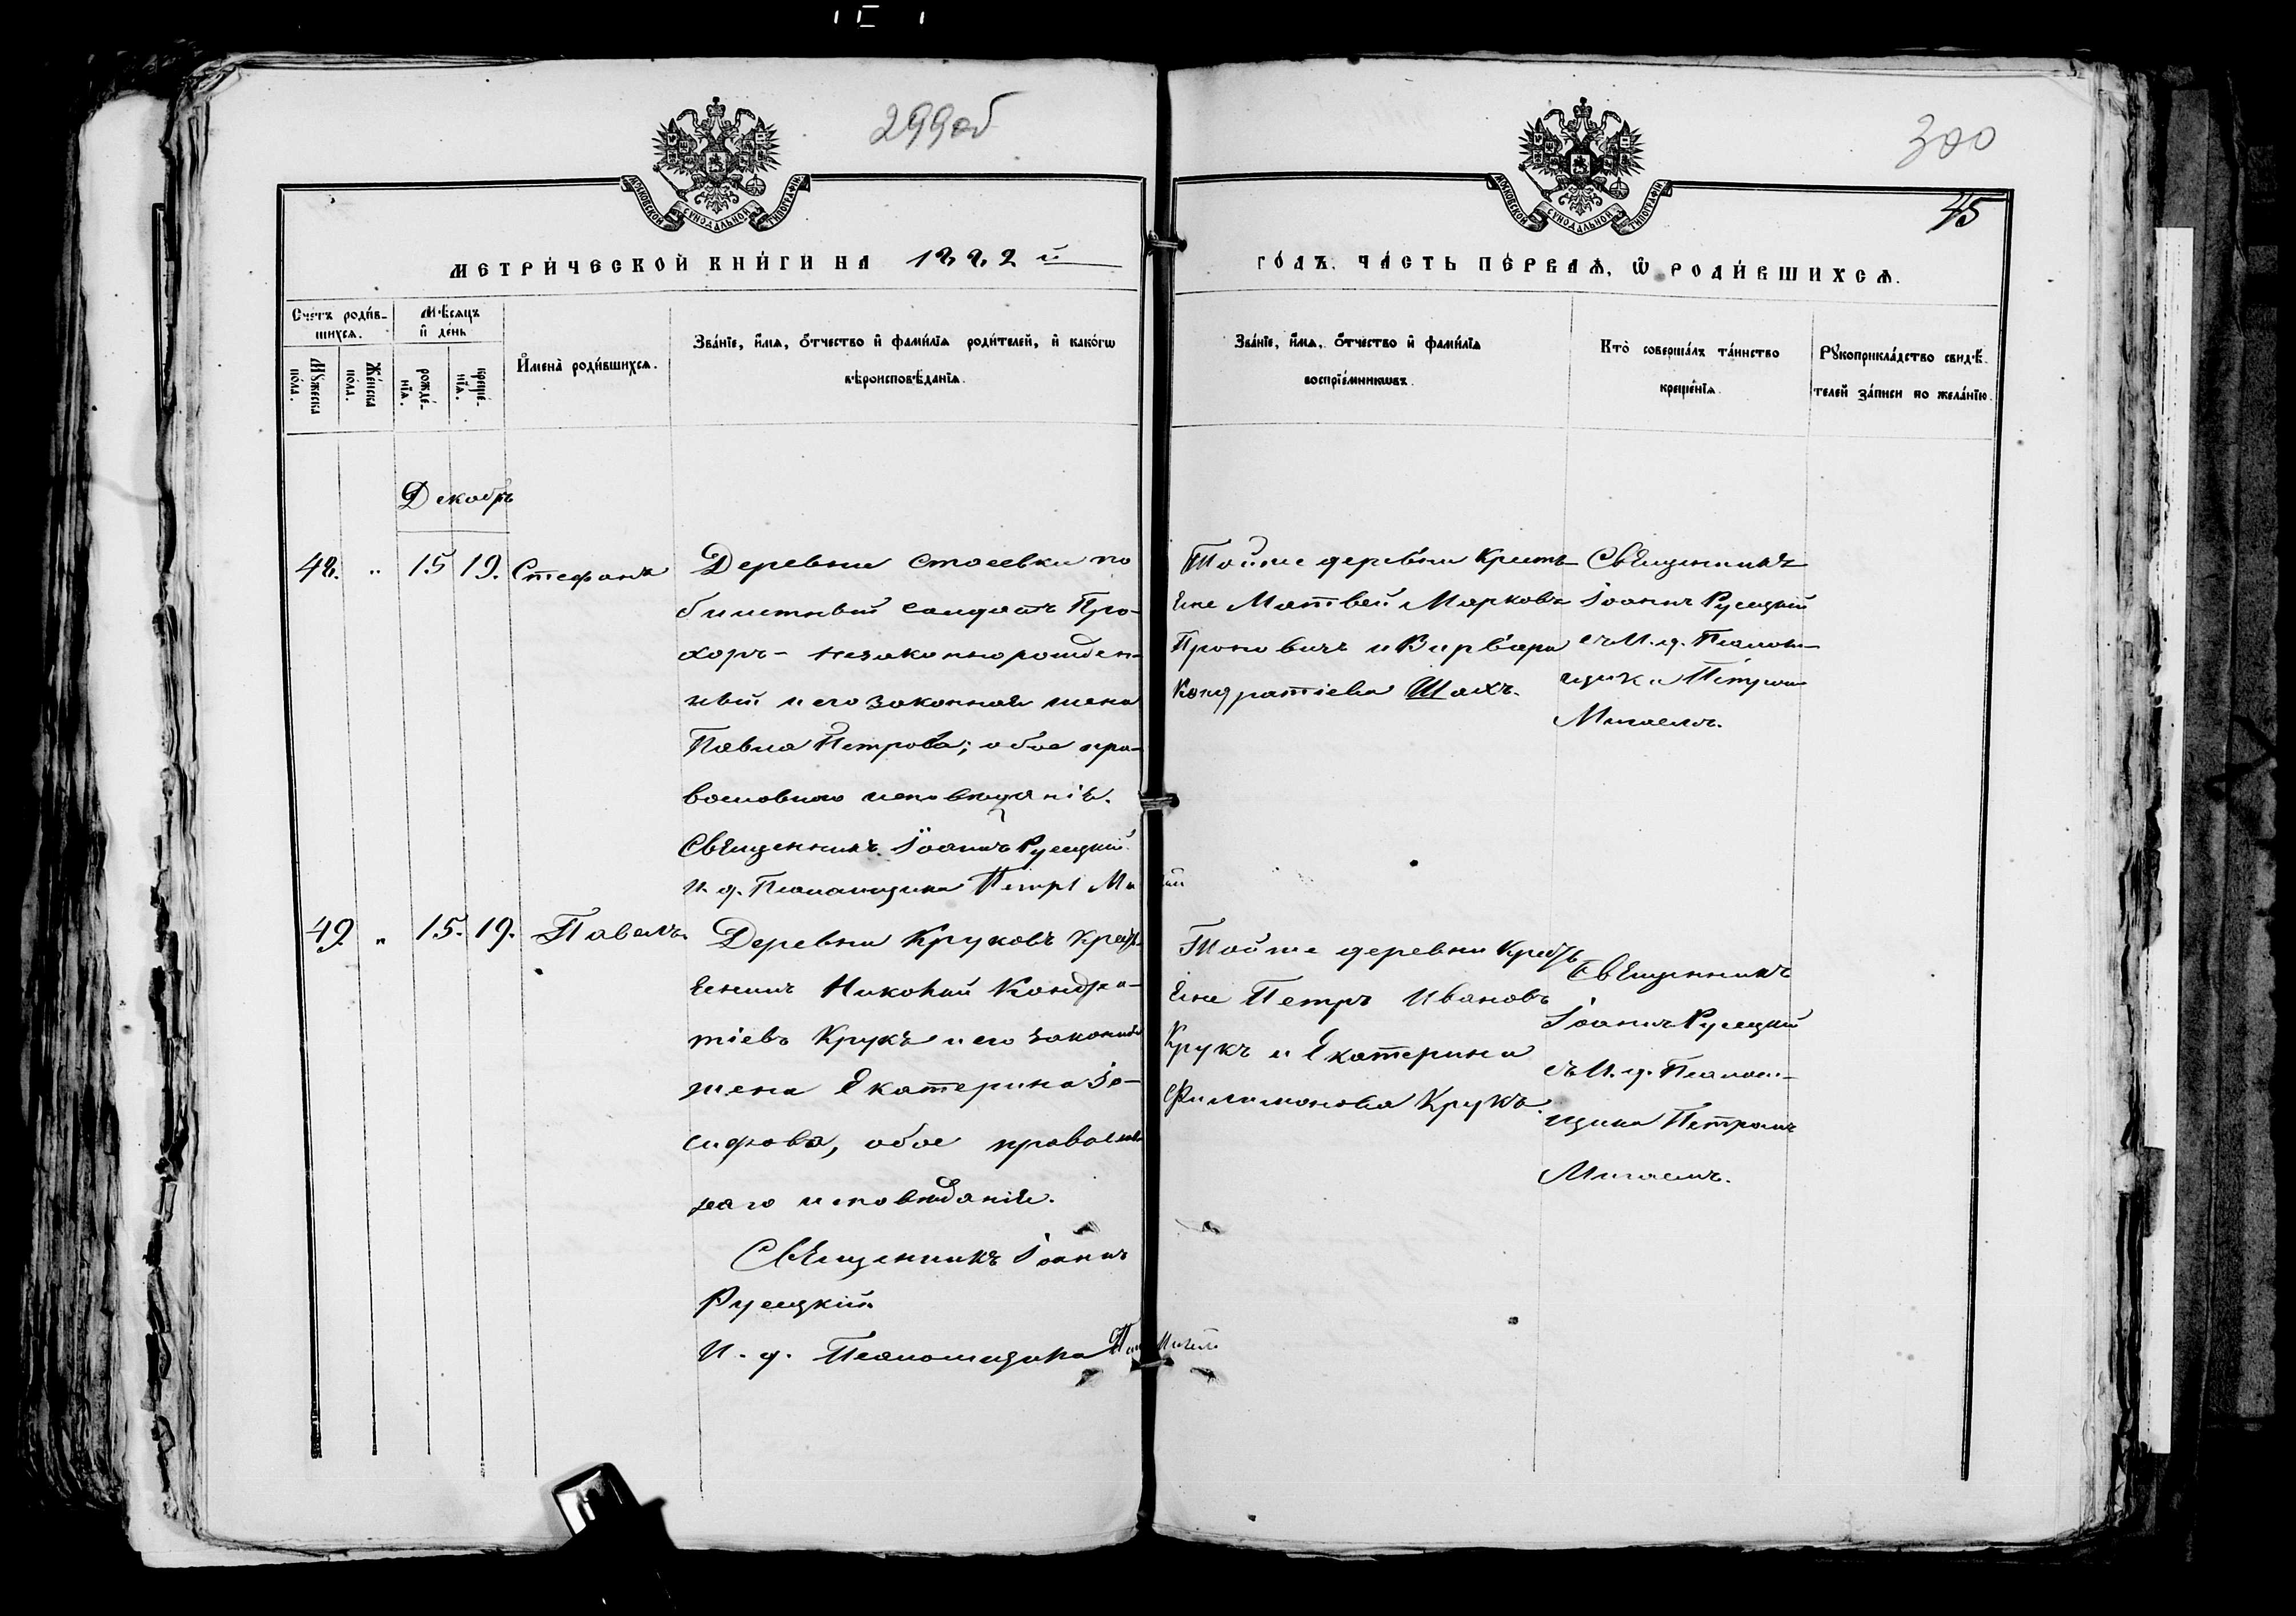 299об
300
45
МОСКОВСКОЙ СѴНОДАЛЬНОЙ ТИПОГРАФІИ
МОСКОВСКОЙ СѴНОДАЛЬНОЙ ТИПОГРАФІИ
МЕТРИ́ЧЕСКОЙ КНИ́ГИ НА 1882 й
ГО́ДЪ. ЧА́СТЬ ПЕ́РВАѦ, Ѡ҆ РОДИ́ВШИХСѦ.
Сче́тъ роди́в-
шихсѧ.
Мѣ́сѧцъ
и҆ де́нь
Мꙋ́жеска
по́ла.
Же́нска
по́ла.
рожде́-
нїѧ.
креще́-
нїѧ.
И҆мена̀ роди́вшихсѧ.
Зва́нїе, и҆́мѧ, ѻ҆́тчество и҆ фами́лїѧ роди́телей, и҆ како́гѡ
вѣроисповѣ́данїѧ.
Зва́нїе, и҆́мѧ, ѻ҆́тчество и҆ фами́лїѧ
воспрїе́мникѡвъ.
Кто̀ соверша́лъ та́инство
креще́нїѧ.
Рꙋкоприкла́дство свидѣ́-
телей за́писи по жела́нїю.
Декабрь
48. " 15 19. Стефанъ
Деревни Стаевки по
билетный солдатъ Про-
хоръ - незаконнорожден-
ный и его законная жена
Павла Петрова; обое пра-
вославнаго исповѣданія.
Священникъ Іоаннъ Русецкій
И. д. Псаломщика Петръ
Тойже деревни Крестья-
не Матвей Марковъ
Проновичъ и Варвара
Кондратіева Шахъ.
Священникъ
Іоаннъ Русецкій
съ И. д. Псалом-
щика Петромъ
49. " 15. 19. Павелъ.
Деревни Круковъ Крестья-
янинъ Николай Кондра-
тіевъ Крукъ и его законная
жена Екатерина Іо-
сифова, обое православ-
наго исповѣданія.
Священникъ Іоаннъ
Русецкій
И. д. Псаломщика
Тойже деревни Кресть-
яне Петръ Ивановъ
Крукъ и Екатерина
Филимонова Крукъ.
Священникъ
Іоаннъ Русецкій
съ И. д. Псалом-
щика Петромъ